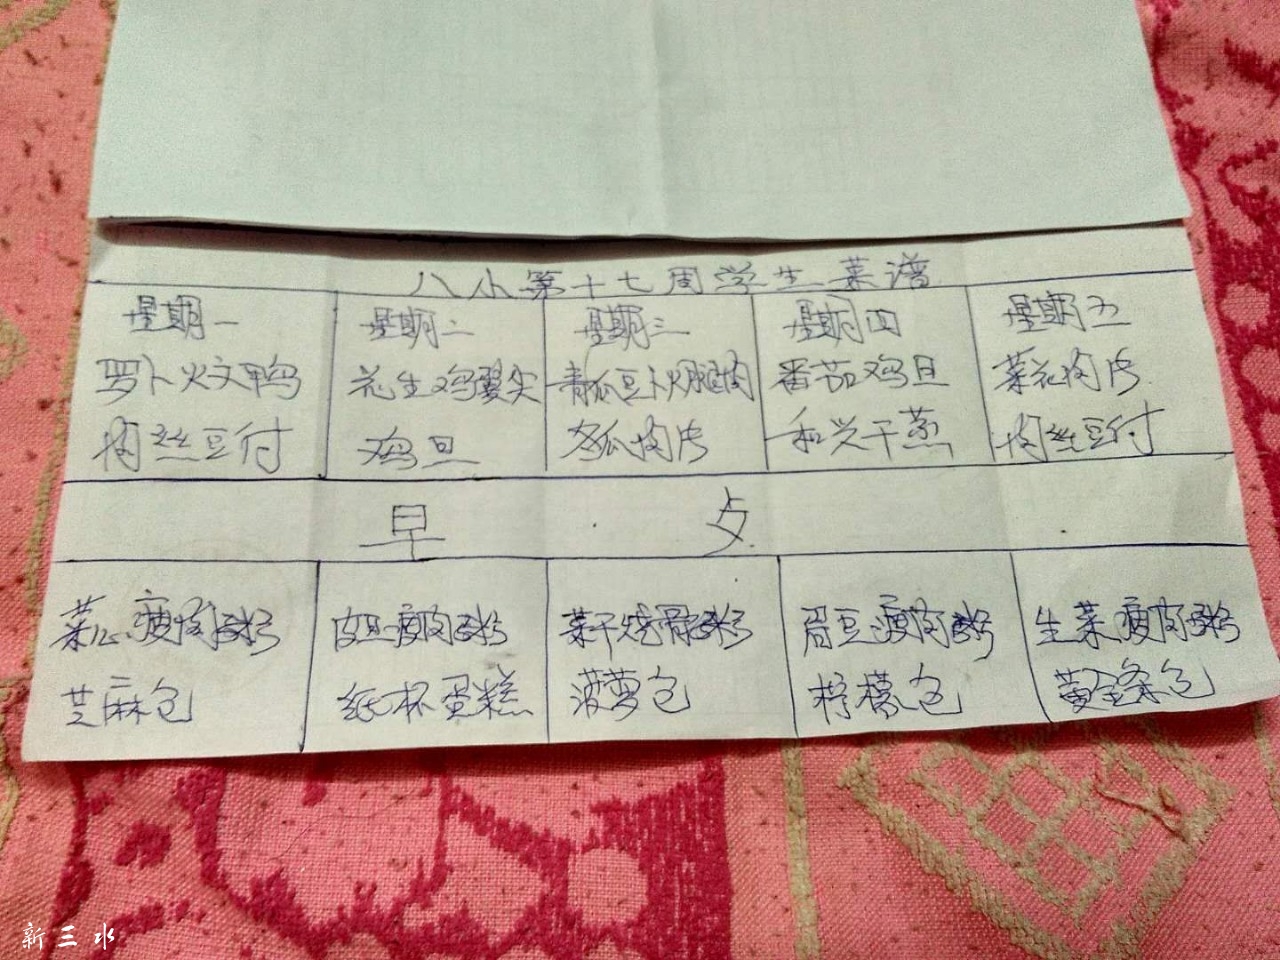 八小第十七周学生菜谱
星期一 星期二 星期三 星期四 星期五
罗卜火文鸭 花生鸡翼尖 青瓜豆卜火腿肉 番茄鸡旦 菜花肉片
肉丝豆付 鸡旦 冬瓜肉片 和兴干蒸 肉丝豆付
早 歺
菜心瘦肉粥 皮旦瘦肉粥 菜干烧骨粥 眉豆瘦肉粥 生菜瘦肉粥
芝麻包 纸杯蛋糕 菠萝包 柠檬包 黄金条包
新三水